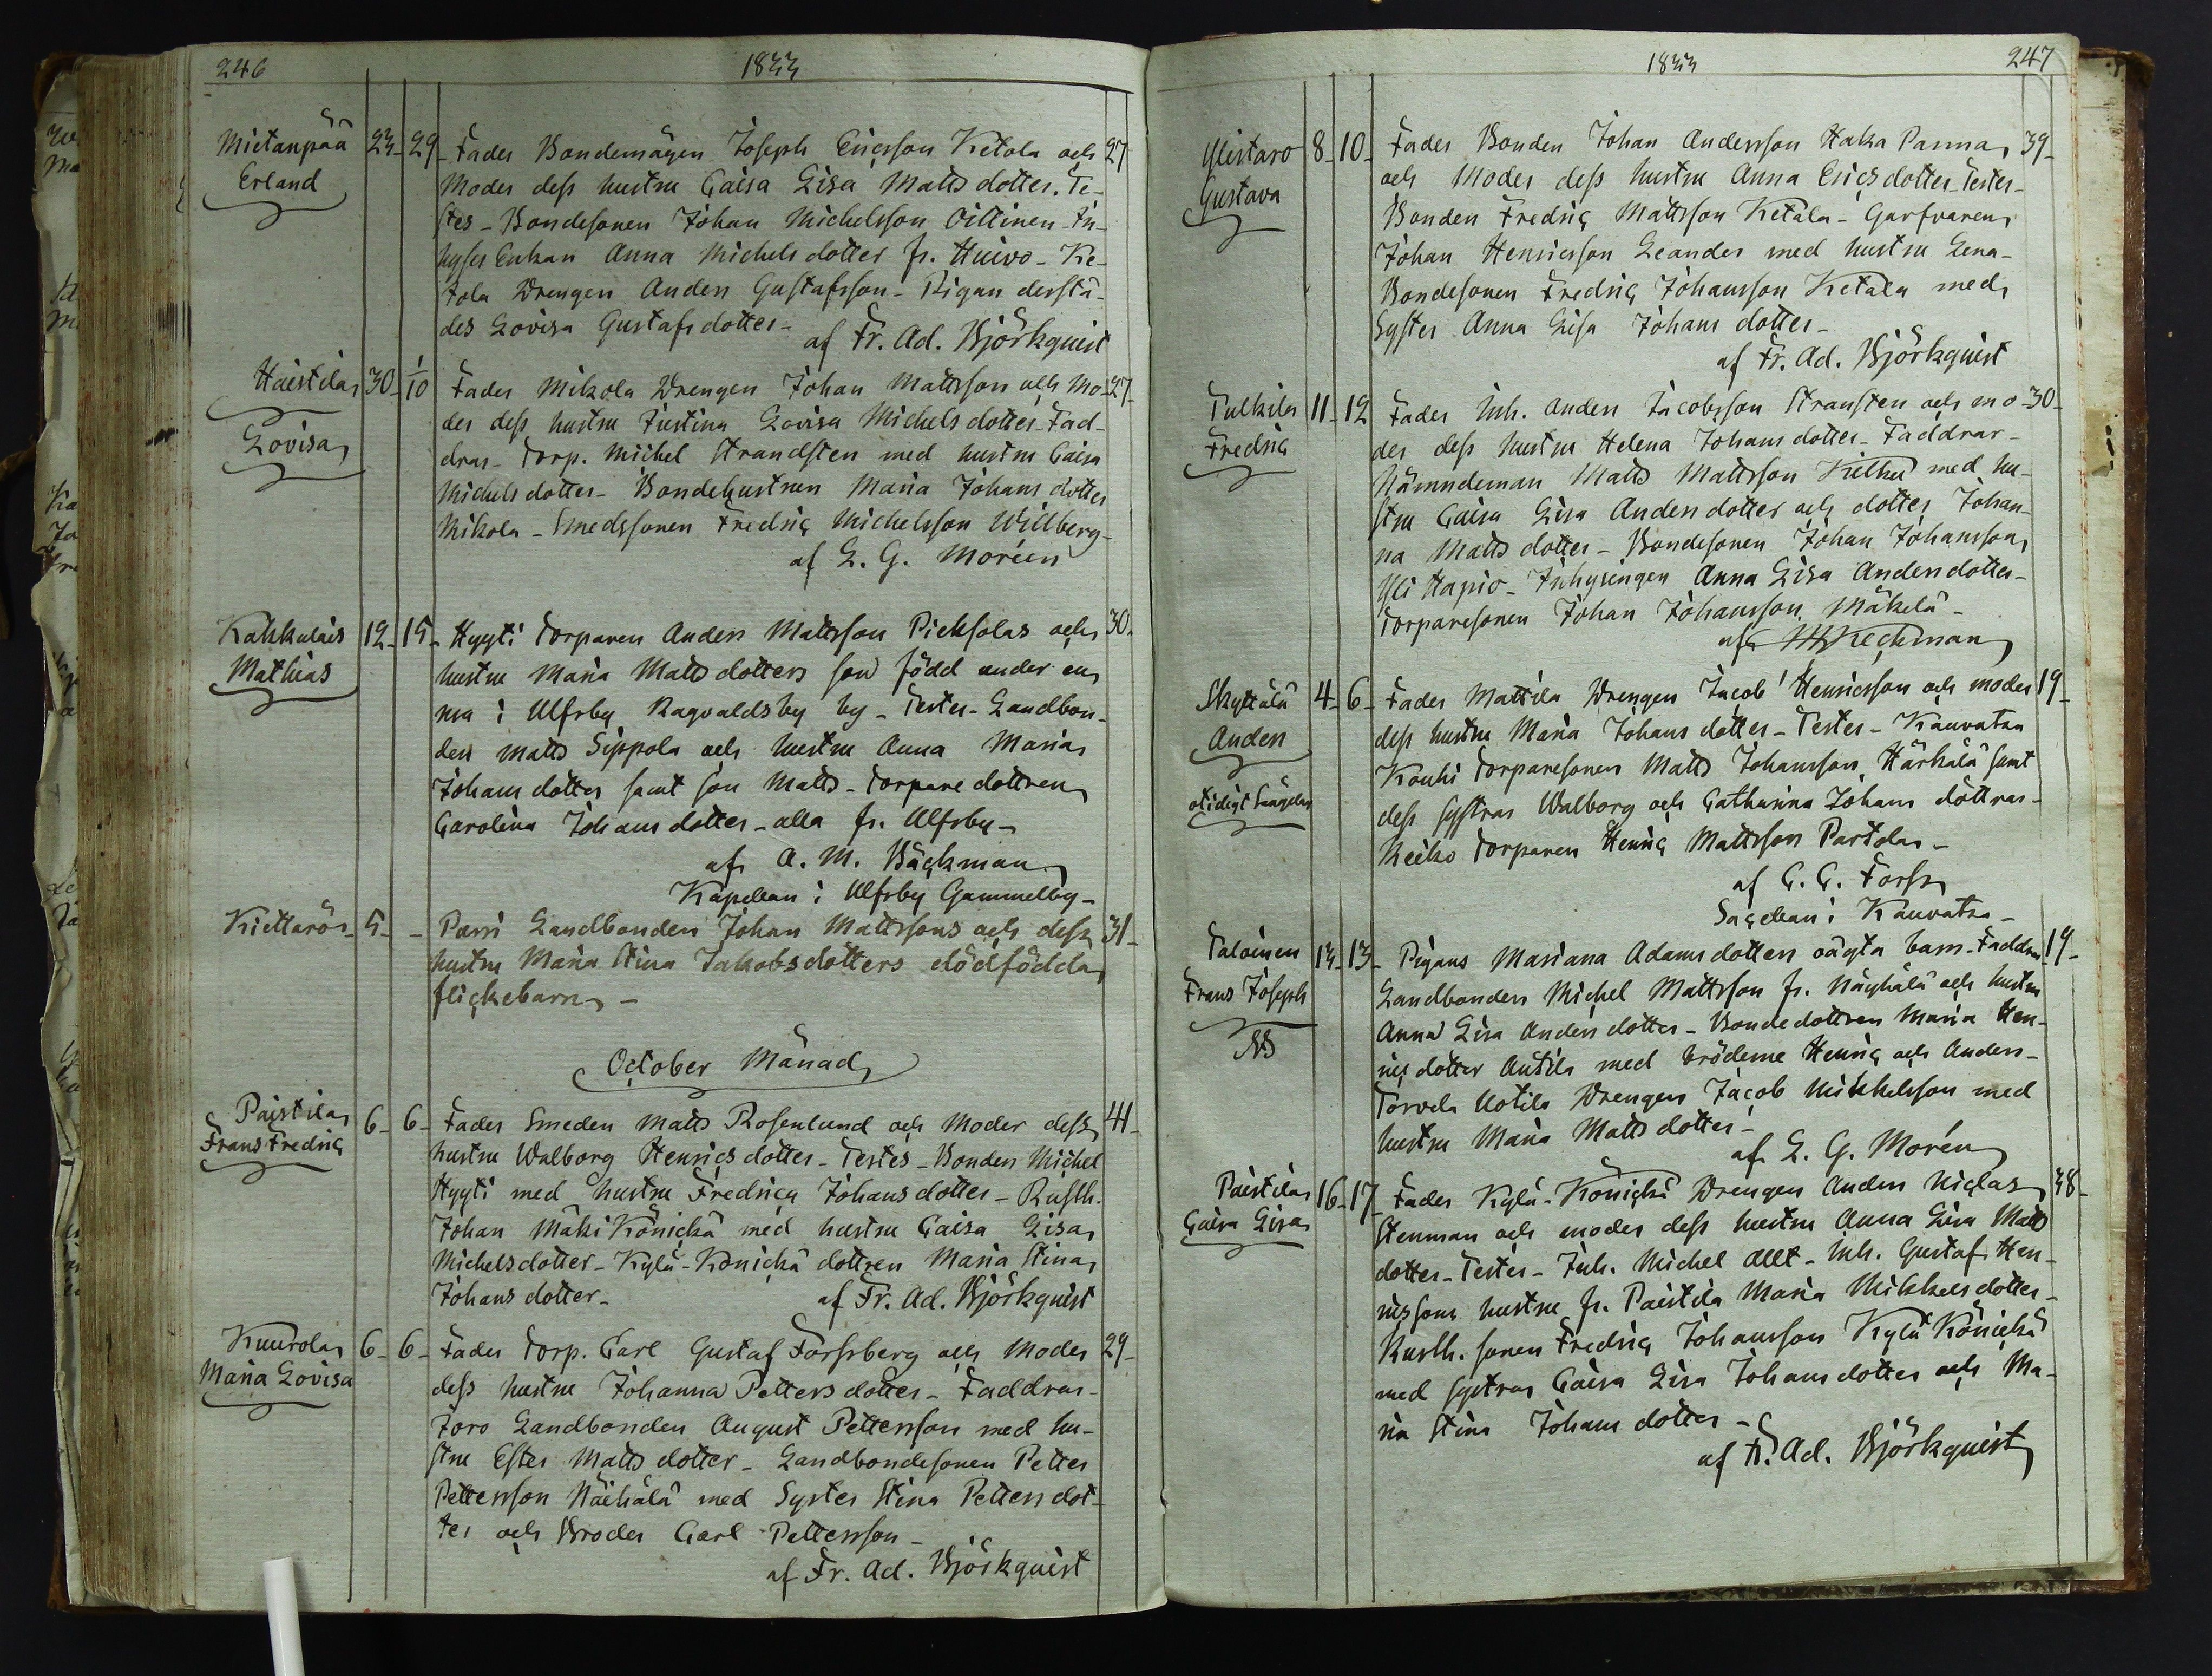 246
1833
Mietanpää 23 29 Fader Bondemågen Joseph Ericsson Ketola och 27
Erland Moder dess hustru Caisa Lisa Mattsdotter. Te-
stes - Bondesonen Johan Michelsson Oittinen - In-
hyses Enkan Anna Michelsdotter fr. Huivo - Ke-
tola Drengen Anders Gustafsson - Pigan derstä-
des Lovisa Gustafsdotter -
af Fr. Ad. Björkquist
Haistila 30 1/10 Fader Mikola Drengen Johan Mattsson och Mo- 27
Lovisa der dess hustru Justina Lovisa Michelsdotter - Fad-
drar - Torp. Michel Strandsten med hustru Caisa
Michelsdotter - Bondehustrun Maria Johansdotter
Mikola - Smedssonen Fredric Michelsson Willberg -
af L. G. Moréen
Kahkulais 12 15 Hyyti Torparen Anders Mattsson Pieksolas och 30
Mathias hustru Maria Mattsdotters son född under en
resa i Ulfsby Ragvaldsby by - Testes - Landbon-
den Matts Sippola och hustru Anna Maria
Johansdotter samt son Matts - Torpare dottren
Carolina Johansdotter - alla fr. Ulfsby -
af A. M. Bäckman
Kapellan i Ulfsby Gammelby -
Kiettarös 5 - Parri Landbonden Johan Mattssons och dess 31
hustru Maria Stina Jakobsdotters dödfödda
flickebarn -
October Månad
Paistila 6 6 Fader Smeden Matts Rosenlund och Moder dess 41
Frans Fredric hustru Walborg Henricsdotter - Testes - Bonden Michel
Hyyti med hustru Fredrica Johansdotter - Rusth.
Johan Mäki Könickä med hustru Caisa Lisa
Michelsdotter - Kylä-Könickä dottren Maria Stina
Johansdotter -
af Fr. Ad. Björkquist
Kuurola 6 6 Fader Torp. Carl Gustaf Forssberg och Moder 29
Maria Lovisa dess hustru Johanna Pettersdotter - Faddrar -
Joro Landbonden August Pettersson med hu-
stru Ester Mattsdotter - Landbondesonen Petter
Pettersson Näihälä med Syster Stina Pettersdot-
ter och Broder Carl Pettersson -
af Fr. Ad. Björkquist
1833
247
Ylistaro 8 10 Fader Bonden Johan Andersson Haka Panna 39
Gustava och Moder dess hustru Anna Ericsdotter - Testes -
Bonden Fredric Mattsson Ketala - Garfvaren
Johan Henricsson Leander med hustru Lena -
Bondesonen Fredric Johansson Ketala med
Syster Anna Lisa Johansdotter -
af Fr. Ad. Björkquist
Tulkila 11 12 Fader Inh. Anders Jacobsson Stransten och mo- 30
Fredric der dess hustru Helena Johansdotter - Faddrar -
Nämndeman Matts Mattsson Kilku med hu-
stru Caisa Lisa Andersdotter och dotter Johan-
na Mattsdotter - Bondesonen Johan Johansson
Yli Hapio - Inhysingen Anna Lisa Andersdotter -
Torparesonen Johan Johansson Mäkelä -
af Heckman
Skyttälä 4 6 Fader Mattila Drengen Jacob Henricsson och moder 19
Anders dess hustru Maria Johansdotter - Testes - Kauvatsa
otidigt Kouhi Torparesonen Matts Johansson Härkälä samt
dess systrar Walborg och Catharina Johans döttrar -
Keiko Torparen Henric Mattsson Partola -
af C. G. Forss
Sacellan i Kauvatsa -
Taloinen 13 13 Pigans Mariana Adamsdotters oägta barn - Faddrar 19
Frans Joseph Landbonden Michel Mattsson fr. Näyhälä och hustru
NB Anna Lisa Andersdotter - Bondedottren Maria Hen-
ricsdotter Antila med bröderne Henric och Anders -
Torvela Uotila Drengen Jacob Mickelsson med
hustru Maria Mattsdotter -
af L. G. Morén
Paistila 16 17 Fader Kylä-Könickä Drengen Anders Niclas 38
Caisa Lisa Stenman och moder dess hustru Anna Lisa Matts
dotter - Testes - Inh. Michel Allt - Inh. Gustaf Hen-
ricssons hustru fr. Paistila Maria Mikkelsdotter -
Rusth. sonen Fredric Johansson Kylä Könickä
med systrar Caisa Lisa Johansdotter och Ma-
ria Stina Johansdotter -
af Fr. Ad. Björkquist